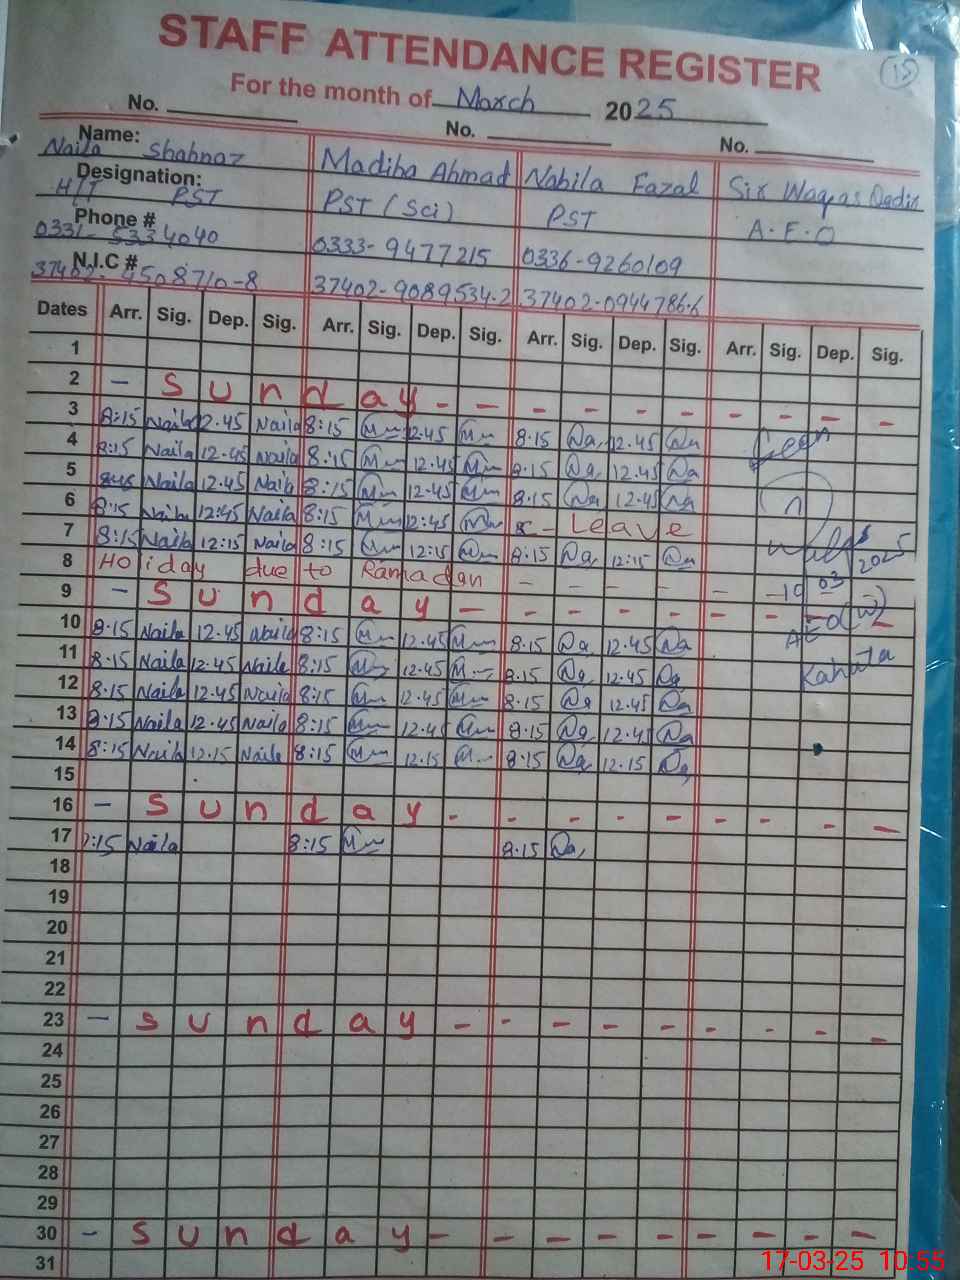 STAFF ATTENDANCE REGISTER
15
For the month of March 2025
No. No. No.
Name: Naila Shahnaz Madiha Ahmad Nabila Fazal Sir Waqas Qadir
Designation: HT PST PST (Sci) PST A.E.O
Phone # 0331-5334040 0333-9477215 0336-9260109
N.I.C # 37402-4508710-8 37402-9089534-2 37402-0944786-6
Dates Arr. Sig. Dep. Sig. Arr. Sig. Dep. Sig. Arr. Sig. Dep. Sig. Arr. Sig. Dep. Sig.
1
2 - Sunday - - - - - - - - - -
3 8:15 Naila 12.45 Naila 8:15 12.45 8.15 12.45
4 8:15 Naila 12.45 Naila 8:15 12.45 8.15 12.45
5 Naila 12.45 Naila 8:15 12.45 8.15 12.45
6 8:15 Naila 12:45 Naila 8:15 12:45 Leave
7 8:15 Naila 12:15 Naila 8:15 12:15 8:15 12:15
8 Holiday due to Ramadan - - - - - -
9 - Sunday - - - - - - - - -
10 8.15 Naila 12.45 Naila 8:15 12.45 8.15 12.45
11 8.15 Naila 12.45 Naila 8:15 12.45 8.15 12.45
12 8.15 Naila 12.45 Naila 8:15 12.45 8.15 12.45
13 8:15 Naila 12.45 Naila 8:15 12.45 8.15 12.45
14 8:15 Naila 12.15 Naila 8:15 12.15 8.15 12.15
Seen
03 2025
AEO(W)
Kahuta
15
16 - Sunday - - - - - - - - -
17 Naila 8:15 8.15
18
19
20
21
22
23 - Sunday - - - - - - - - -
24
25
26
27
28
29
30 - Sunday - - - - - - - - -
31
17-03-25 10:55